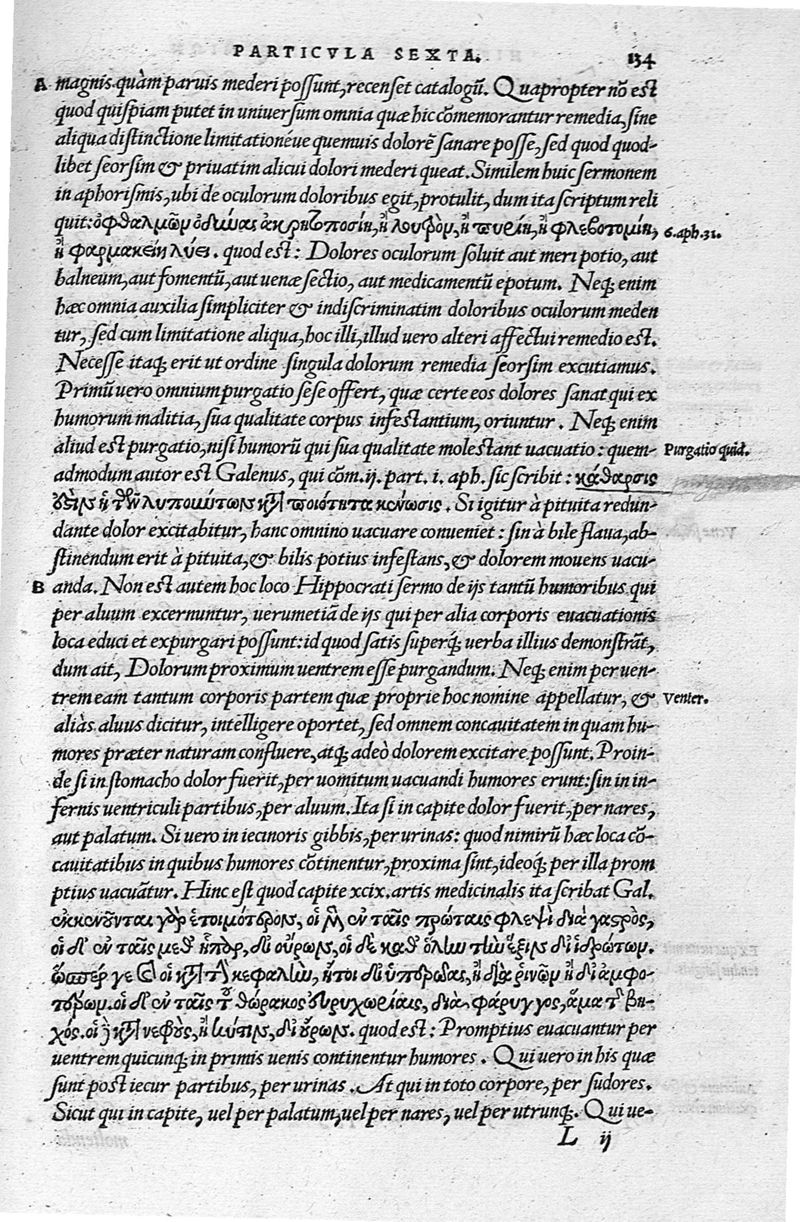 PARTICVLA SEXTA. 134
A magnis quàm paruis mederi possunt, recenset catalogũ. Quapropter nõ est
quod quispiam putet in uniuersum omnia quæ hic cõmemorantur remedia, sine
aliqua distinctione limitationéue quemuis dolorẽ sanare posse, sed quod quod-
libet seorsim & priuatim alicui dolori mederi queat. Similem huic sermonem
in aphorismis, ubi de oculorum doloribus egit, protulit, dum ita scriptum reli
quit: ὀφθαλμῶν ὀδύνας ἀκρητοποσίη, ἢ λουτρὸν, ἢ πυρίη, ἢ φλεβοτομίη, 6. aph. 31.
ἢ φαρμακείη λύει. quod est: Dolores oculorum soluit aut meri potio, aut
balneum, aut fomentũ, aut uenæ sectio, aut medicamentũ epotum. Neq; enim
hæc omnia auxilia simpliciter & indiscriminatim doloribus oculorum meden
tur, sed cum limitatione aliqua, hoc illi, illud uero alteri affectui remedio est.
Necesse itaq; erit ut ordine singula dolorum remedia seorsim excutiamus.
Primũ uero omnium purgatio sese offert, quæ certe eos dolores sanat qui ex
humorum malitia, sua qualitate corpus infestantium, oriuntur. Neq; enim
aliud est purgatio, nisi humorũ qui sua qualitate molestant uacuatio: quem- Purgatio quid.
admodum autor est Galenus, qui cõm. ij. part. i. aph. sic scribit: κάθαρσις
ὅξὶν ἡ τῶν λυπούντων κατὰ ποιότητα κένωσις. Si igitur à pituita redun-
dante dolor excitabitur, hanc omnino uacuare conueniet: sin à bile flaua, ab-
stinendum erit à pituita, & bilis potius infestans, & dolorem mouens uacu-
B anda. Non est autem hoc loco Hippocrati sermo de ijs tantũ humoribus qui
per aluum excernuntur, uerumetiã de ijs qui per alia corporis euacuationis
loca educi et expurgari possunt: id quod satis superq́; uerba illius demonstrãt,
dum ait, Dolorum proximum uentrem esse purgandum. Neq; enim per uen-
trem eam tantum corporis partem quæ proprie hoc nomine appellatur, & Venter.
aliàs aluus dicitur, intelligere oportet, sed omnem concauitatem in quam hu-
mores præter naturam confluere, atq; adeò dolorem excitare possunt. Proin-
de si in stomacho dolor fuerit, per uomitum uacuandi humores erunt: sin in in-
fernis uentriculi partibus, per aluum. Ita si in capite dolor fuerit, per nares,
aut palatum. Si uero in iecinoris gibbis, per urinas: quod nimirũ hæc loca cõ-
cauitatibus in quibus humores cõtinentur, proxima sint, ideoq; per illa prom
ptius uacuãtur. Hinc est quod capite xcix. artis medicinalis ita scribat Gal.
ἐκκενοῦνται γὰρ ἑτοιμότερον, οἱ μὲν ἐν ταῖς πρώταις φλεψὶ διὰ γαστρὸς,
οἱ δ' ἐν ταῖς μεθ' ἧπαρ, δι' οὔρων, οἱ δὲ καθ' ὅλην τὴν ἕξιν δι' ἱδρώτων.
ὥσπερ γε καὶ οἱ κατὰ τὴν κεφαλὴν, ἤτοι δι' ὑπερῴας, ἢ διὰ ῥινῶν ἢ δι' ἀμφο-
τέρων. οἱ δ' ἐν ταῖς τοῦ θώρακος εὐρυχωρίαις, διὰ φάρυγγος, ἅμα τῷ βη-
χός. οἱ δὲ κατὰ νεφροὺς, ἢ κύστιν, δι' οὔρων. quod est: Promptius euacuantur per
uentrem quicunq; in primis uenis continentur humores. Qui uero in his quæ
sunt post iecur partibus, per urinas. At qui in toto corpore, per sudores.
Sicut qui in capite, uel per palatum, uel per nares, uel per utrunq;. Qui ue-
L ij